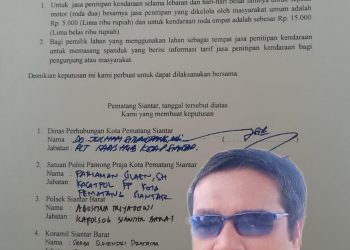 1. Untuk jasa penitipan kendaraan selama lebaran dan hari-hari besar lainnya untuk sepeda
motor (roda dua) besarnya jasa penitipan yang dikelola oleh masyarakat umum adalah
Rp. 5.000 (Lima ribu rupiah) dan untuk kendaraan roda empat adalah sebesar Rp. 15.000
(Lima belas ribu rupiah).
2. Bagi pemilik lahan yang menggunakan lahan sebagai tempat jasa penitipan kendaraan untuk
memasang spanduk yang berisi informasi tarif jasa penitipan kendaraan bagi
pengunjung atau masyarakat.
Demikian keputusan ini kami perbuat untuk dapat dilaksanakan bersama.
Pematang Siantar, tanggal tersebut diatas
Kami yang membuat keputusan
1. Dinas Perhubungan Kota Pematang Siantar
Nama :
Jabatan :
2. Satuan Polisi Pamong Praja Kota Pematang Siantar
Nama : PARIAMAN SILAEN, SH
Jabatan : KASATPOL PP KOTA
PEMATANG SIANTAR
3. Polsek Siantar Barat
Nama : AGUSTINA
Jabatan : KAPOLSEK SIANTAR BARAT
4. Koramil Siantar Barat
Nama :